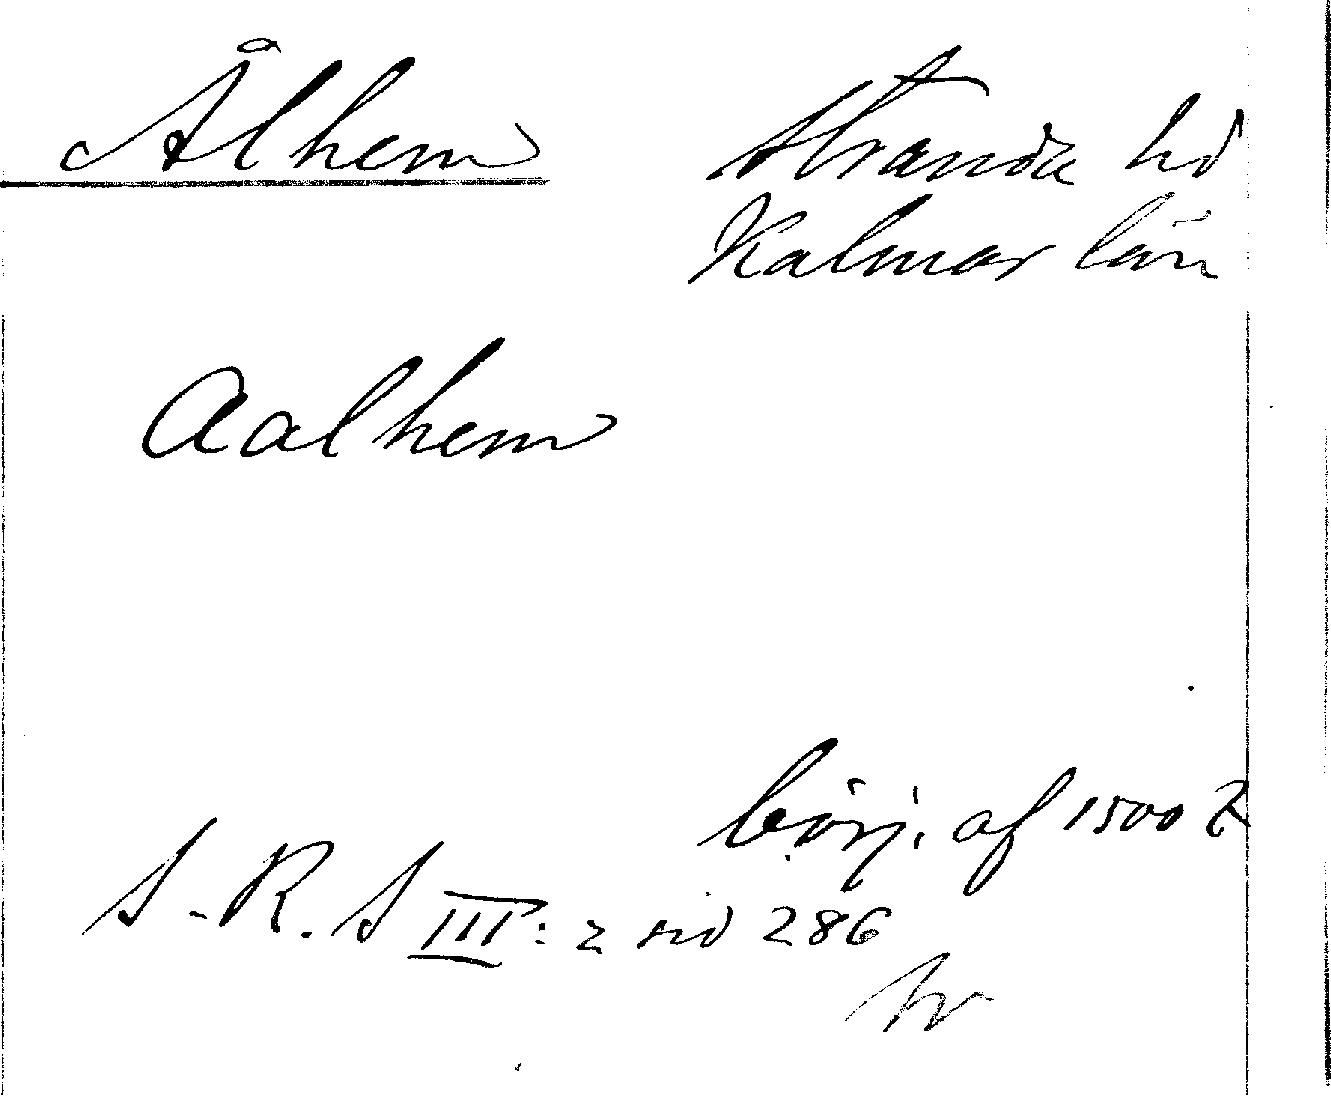 Ålhem
Stranda hd
Kalmar län
Aalhem
börj. af 1500 t
S.R.S III: 2 sid 286